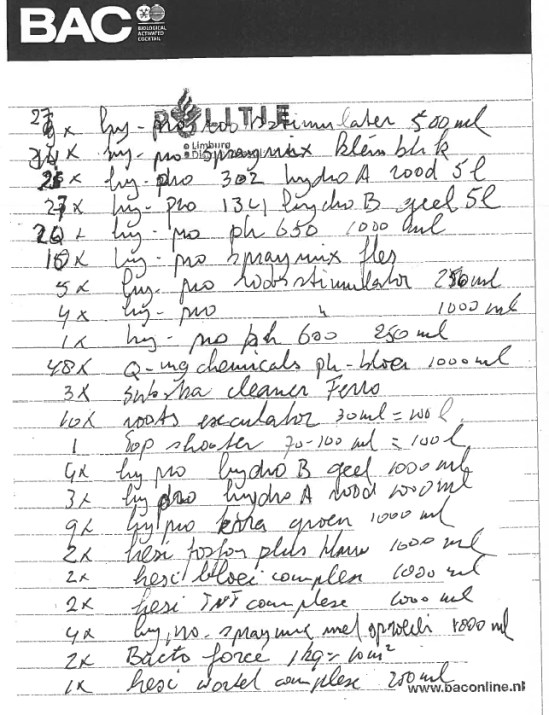 BAC
BIOLOGICAL
ACTIVATED
COCKTAIL
POLITIE
Limburg
27 x hy-pro stimulater 500 ml
x hy-pro spraymix klein blik
25 x hy-pro 302 hydro A rood 5 l
27 x hy-pro 134 hydro B geel 5 l
20 x hy-pro ph 650 1000 ml
10 x hy-pro spraymix fles
5 x hy-pro rootsstimulator 250 ml
4 x hy-pro " 1000 ml
1 x hy-pro ph 600 250 ml
48 x Q-ing chemicals ph-bloei 1000 ml
3 x substra cleaner Ferro
10x roots exculator 30 ml = 100 l
1 Top shooter 70-100 ml = 100 l
4x hy pro hydro B geel 1000 ml
3x hy pro hydro A rood 1000 ml
9x hy pro groen 1000 ml
2x hesi fosfor plus 1000 ml
2x hesi bloei complex 1000 ml
2x hesi TNT complex 1000 ml
4x hy-pro-spraymix met 1000 ml
2x Bacto force 1 kg = 10 m²
1x hesi wortel complex 200 ml
www.baconline.nl